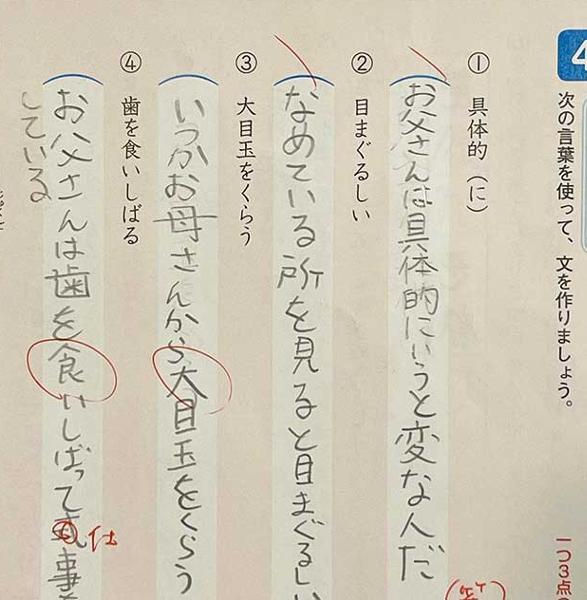 4
次の言葉を使って、文を作りましょう。
一つ3点
① 具体的(に)
お父さんは具体的にいうと変な人だ
② 目まぐるしい
なめている所を見ると目まぐるしい
③ 大目玉をくらう
いつかお母さんから大目玉をくらう
④ 歯を食いしばる
お父さんは歯を食いしばって事
仕
している